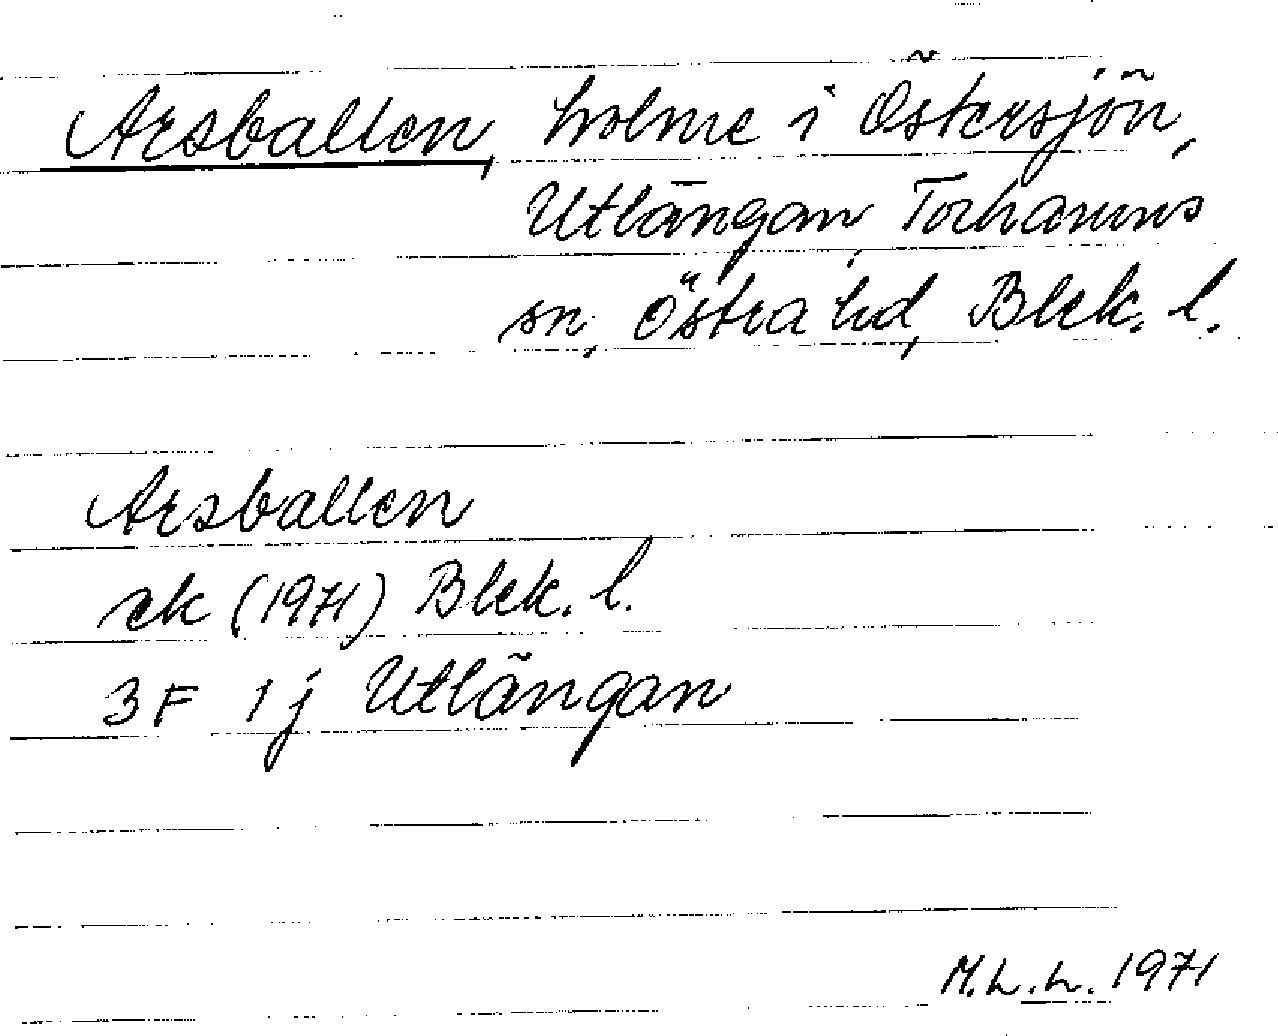 Arsballen, holme i Östersjön,
Utlängan, Torhamns
sn, Östra hd, Blek. l.
Arsballen
ek (1971) Blek. l.
3F 1j Utlängan
M.L.L. 1971